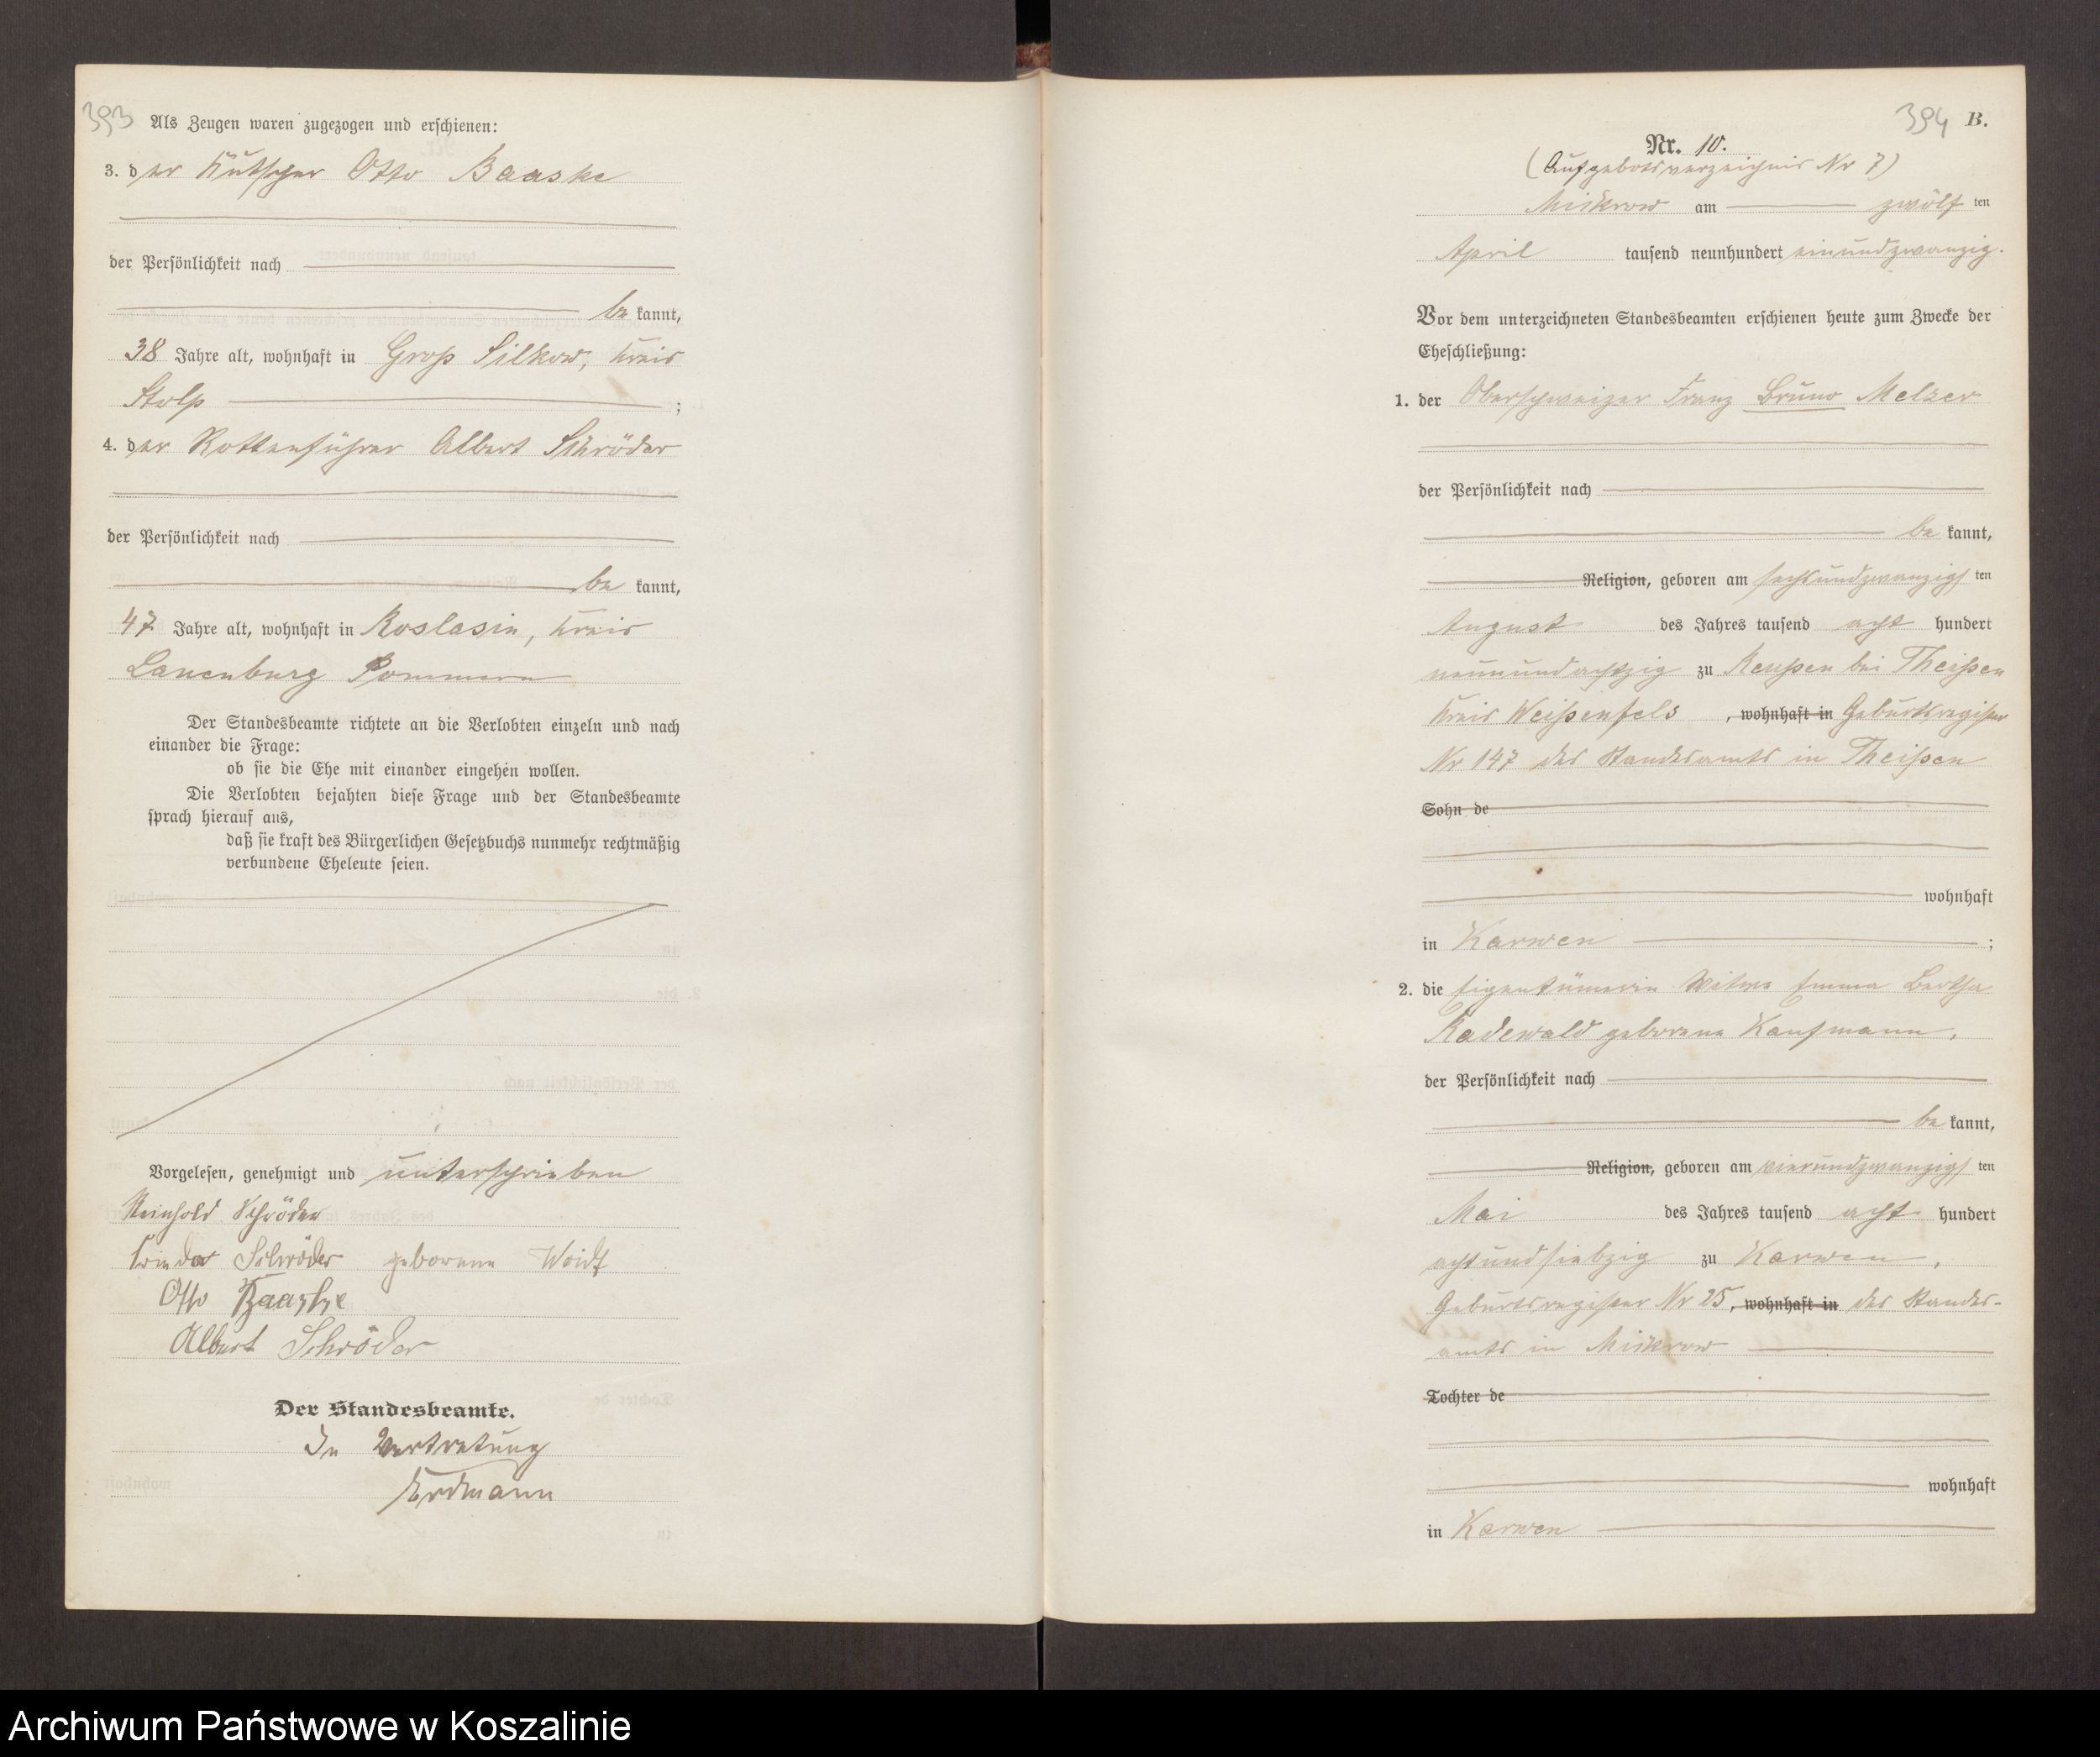 393
Als Zeugen waren zugezogen und erschienen:
3. der Kutscher Otto Baaske
der Persönlichkeit nach
be kannt,
38 Jahre alt, wohnhaft in Groß Silkow, Kreis
Stolp ;
4. der Rottenführer Albert Schröder
der Persönlichkeit nach
be kannt,
47 Jahre alt, wohnhaft in Roslasin, Kreis
Lauenburg Pommern
Der Standesbeamte richtete an die Verlobten einzeln und nach
einander die Frage:
ob sie die Ehe mit einander eingehen wollen.
Die Verlobten bejahten diese Frage und der Standesbeamte
sprach hierauf aus,
daß sie kraft des Bürgerlichen Gesetzbuchs nunmehr rechtmäßig
verbundene Eheleute seien.
Vorgelesen, genehmigt und unterschrieben
Reinhold Schröder
Frieda Schröder geborene Woidt
Otto Baaske
Albert Schröder
Der Standesbeamte.
In Vertretung
Erdmann
394 B.
Nr. 10.
(Aufgebotsverzeichnis Nr 7)
Mickrow am zwölf ten
April tausend neunhundert einundzwanzig.
Vor dem unterzeichneten Standesbeamten erschienen heute zum Zwecke der
Eheschließung:
1. der Oberschweizer Franz Bruno Melzer
der Persönlichkeit nach
be kannt,
Religion, geboren am sechsundzwanzigs ten
August des Jahres tausend acht hundert
neunundachtzig zu Reußen bei Theißen
Kreis Weißenfels , wohnhaft in Geburtsregister
Nr 147 des Standesamts in Theißen
Sohn de
wohnhaft
in Karwen ;
2. die Eigentümerin Witwe Emma Bertha
Radewald geborene Kaufmann,
der Persönlichkeit nach
be kannt,
Religion, geboren am vierundzwanzigs ten
Mai des Jahres tausend acht hundert
achtundsiebzig zu Karwen,
Geburtsregister Nr 25, wohnhaft in des Standes-
amts in Mickrow
Tochter de
wohnhaft
in Karwen
Archiwum Państwowe w Koszalinie